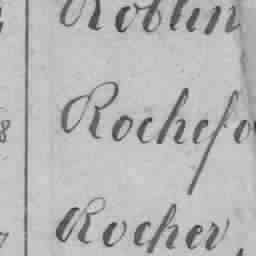 Roblin
8 Rochefo
Rocher,